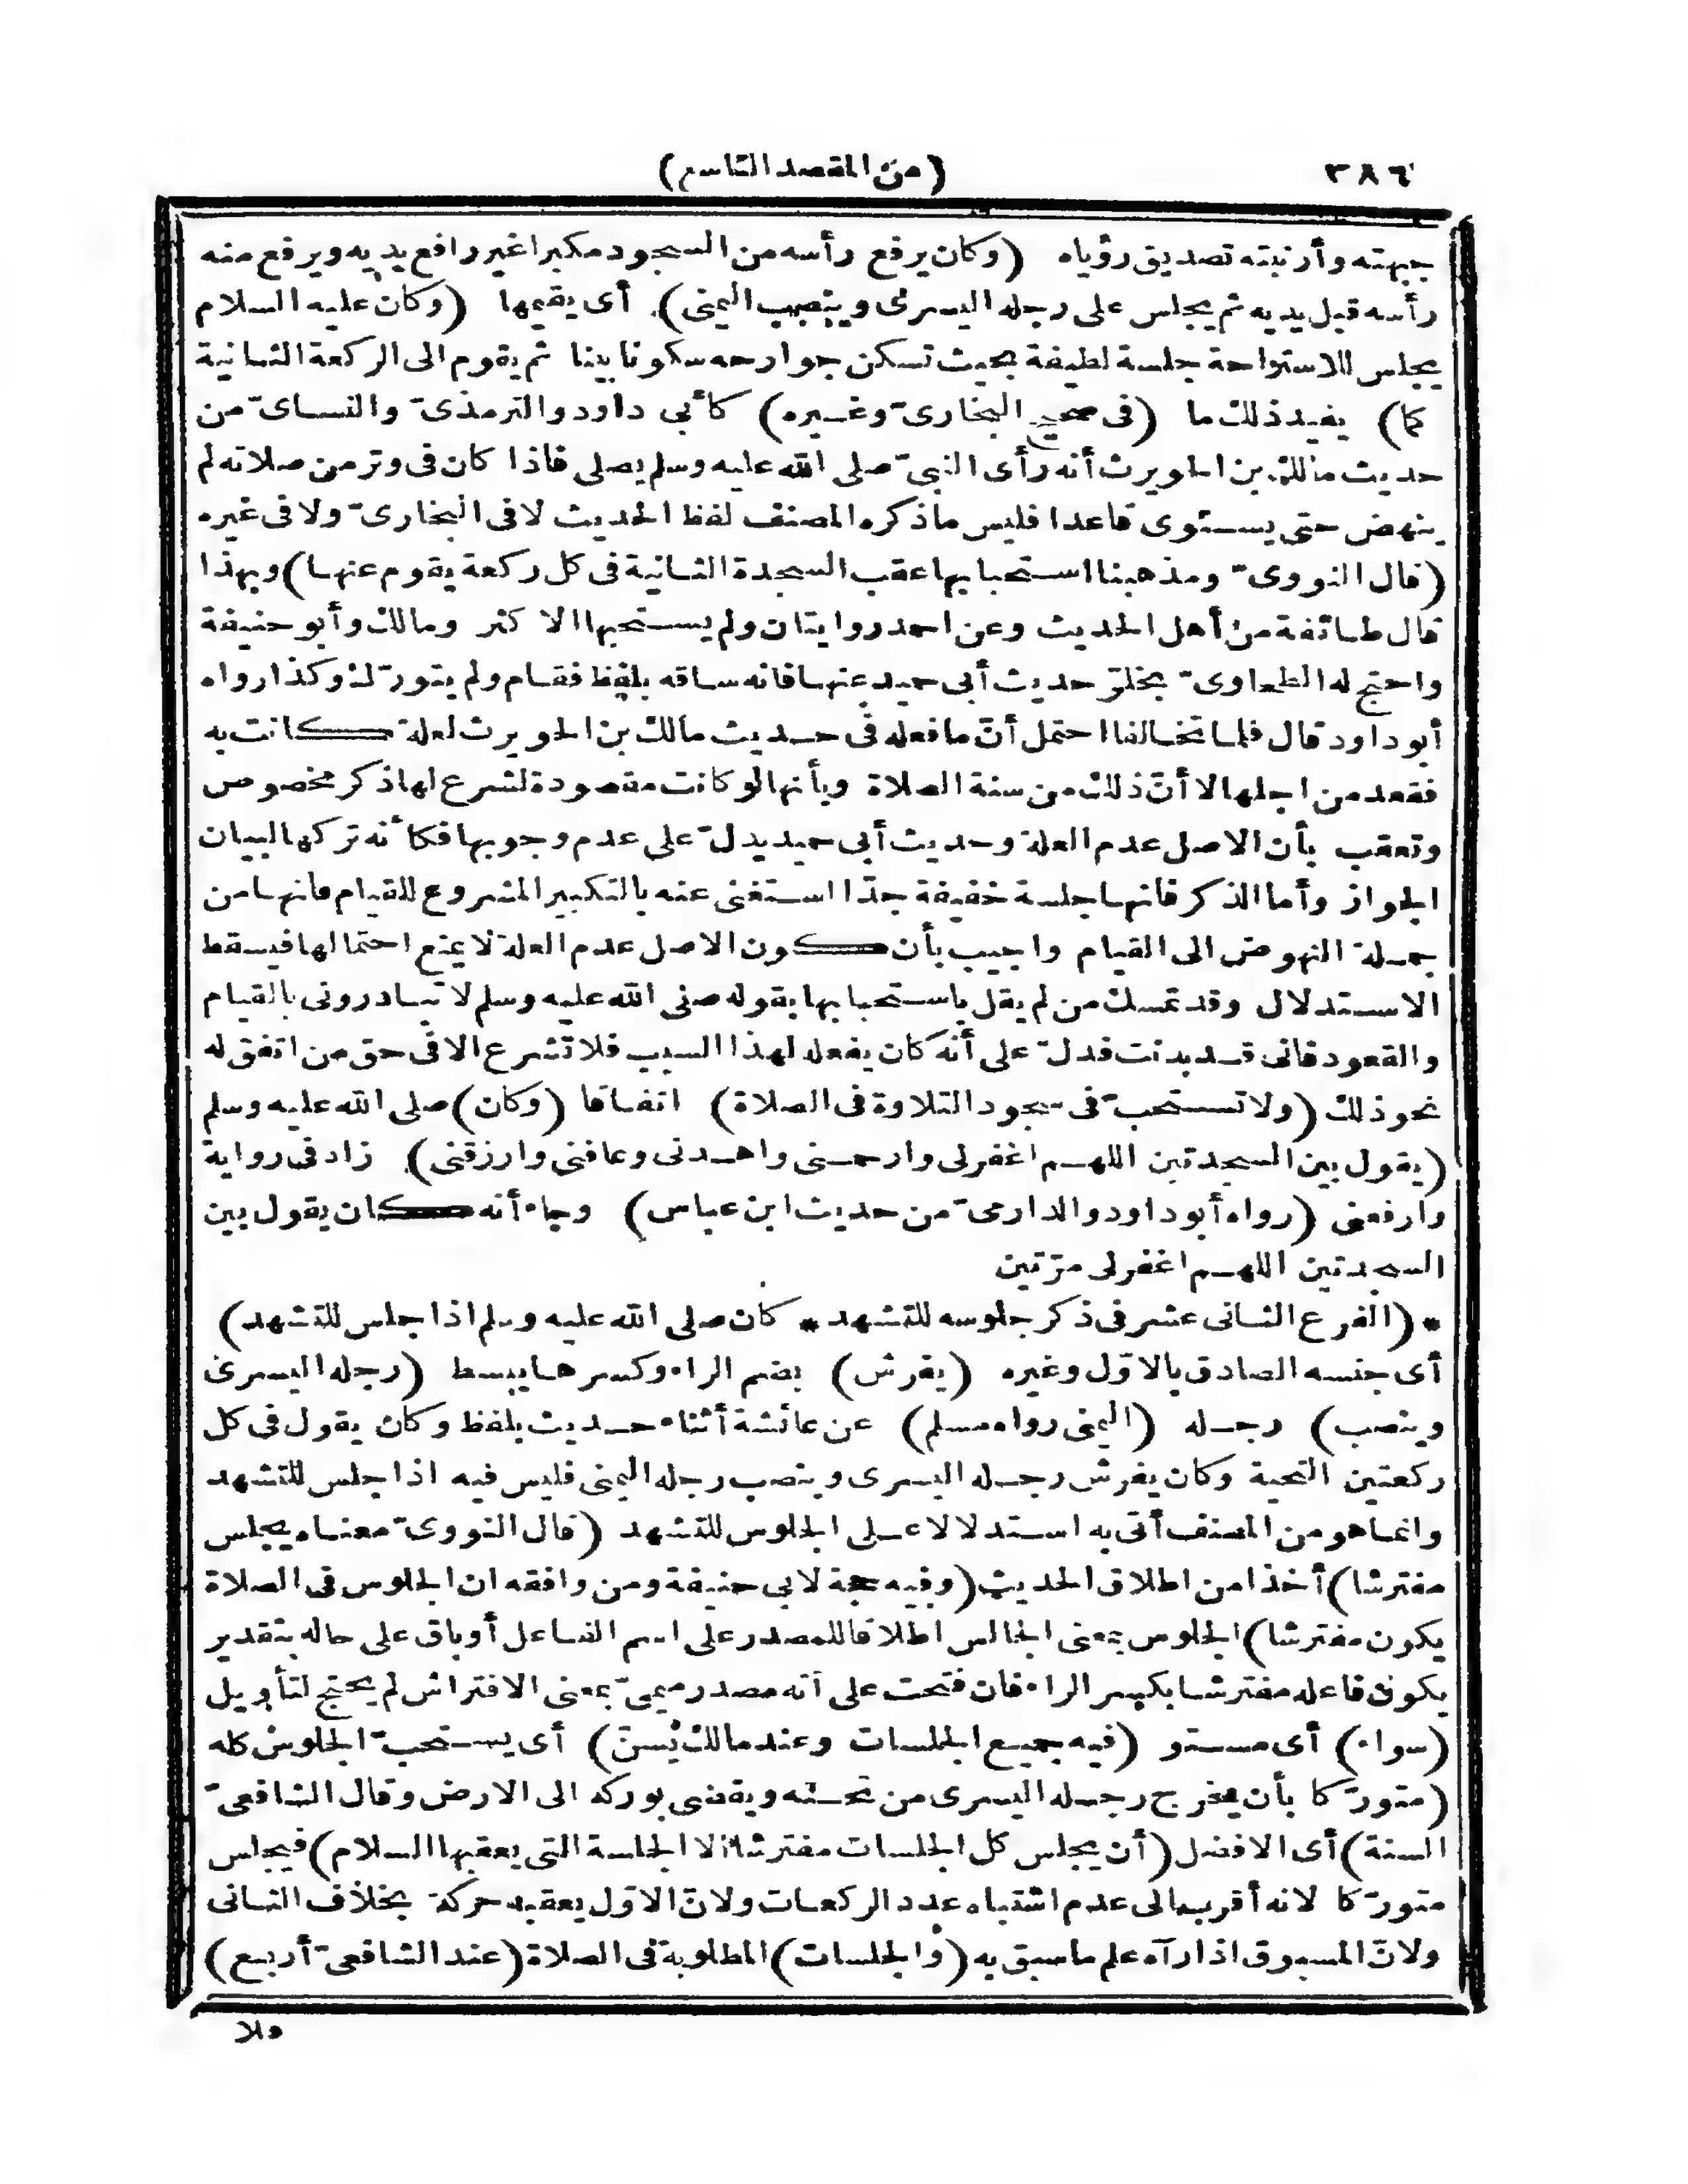 ٣٨٦ (من المقصد التاسع)
جبهته وأرنبته تصديق رؤياه (وكان يرفع رأسه من السجود مكبرا غير رافع يديه ويرفع منه
رأسه قبل يديه ثم يجلس على رجله اليسرى وينصب اليمنى) أى يقيمها (وكان عليه السلام
يجلس للاستراحة جلسة لطيفة بحيث تسكن جوارحه سكونا بينا ثم يقوم الى الركعة الثانية
كما) يفيد ذلك ما (فى صحيح البخارىّ وغيره) كأبى داود والترمذىّ والنساىّ من
حديث مالك بن الحويرث أنه رأى النبىّ صلى الله عليه وسلم يصلى فاذا كان فى وتر من صلاته لم
ينهض حتى يستوى قاعدا فليس ما ذكره المصنف لفظ الحديث لا فى البخارىّ ولا فى غيره
(قال النووىّ ومذهبنا استحبابها عقب السجدة الثانية فى كل ركعة يقوم عنها) وبهذا
قال طائفة من أهل الحديث وعن احمد روايتان ولم يستحبها الاكثر ومالك وأبو حنيفة
واحتج له الطحاوىّ بخلوّ حديث أبى حميد عنها فانه ساقه بلفظ فقام ولم يتورّك وكذا رواه
أبو داود قال فلما تخالفا احتمل أنّ ما فعله فى حديث مالك بن الحويرث لعلة كانت به
فقعد من اجلها لا أنّ ذلك من سنة الصلاة وبأنها لو كانت مقصودة لشرع لها ذكر مخصوص
وتعقب بأن الاصل عدم العلة وحديث أبى حميد يدلّ على عدم وجوبها فكأنه تركها لبيان
الجواز وأما الذكر فانها جلسة خفيفة جدّا استغنى عنه بالتكبير المشروع للقيام فانها من
جملة النهوض الى القيام واجيب بأن كون الاصل عدم العلة لا يمنع احتمالها فيسقط
الاستدلال وقد تمسك من لم يقل باستحبابها بقوله صلى الله عليه وسلم لا تبادرونى بالقيام
والقعود فانى قد بدنت فدلّ على أنه كان يفعله لهذا السبب فلا تشرع الا فى حق من اتفق له
نحو ذلك (ولا تستحبّ فى سجود التلاوة فى الصلاة) اتفاقا (وكان) صلى الله عليه وسلم
(يقول بين السجدتين اللهم اغفرلى وارحمنى واهدنى وعافنى وارزقنى) زاد فى رواية
وارفعنى (رواه أبو داود والدارمىّ من حديث ابن عباس) وجاء أنه كان يقول بين
السجدتين اللهم اغفرلى مرّتين
* (الفرع الثانى عشر فى ذكر جلوسه للتشهد * كان صلى الله عليه وسلم اذا جلس للتشهد)
أى جنسه الصادق بالاوّل وغيره (يفرش) بضم الراء وكسرها يبسط (رجله اليسرى
وينصب) رجله (اليمنى رواه مسلم) عن عائشة أثناء حديث بلفظ وكان يقول فى كل
ركعتين التحية وكان يفرش رجله اليسرى وينصب رجله اليمنى فليس فيه اذا جلس للتشهد
وانما هو من المصنف أتى به استدلالا على الجلوس للتشهد (قال النووىّ معناه يجلس
مفترشا) أخذا من اطلاق الحديث (وفيه حجة لابى حنيفة ومن وافقه ان الجلوس فى الصلاة
يكون مفترشا) الجلوس بمعنى الجالس اطلاقا للمصدر على اسم الفاعل أو باق على حاله بتقدير
يكون فاعله مفترشا بكسر الراء فان فتحت على أنه مصدر ميمىّ بمعنى الافتراش لم يحتج لتأويل
(سواء) أى مستو (فيه جميع الجلسات وعند مالك يُسنّ) أى يستحبّ الجلوس كله
(متورّكا بأن يخرج رجله اليسرى من تحته ويفضى بوركه الى الارض وقال الشافعىّ
السنة) أى الافضل (أن يجلس كل الجلسات مفترشا الا الجلسة التى يعقبها السلام) فيجلس
متورّكا لانه أقرب الى عدم اشتباه عدد الركعات ولانّ الاوّل يعقبه حركة بخلاف الثانى
ولانّ المسبوق اذا رآه علم ما سبق به (والجلسات) المطلوبة فى الصلاة (عند الشافعىّ أربع)
ولا